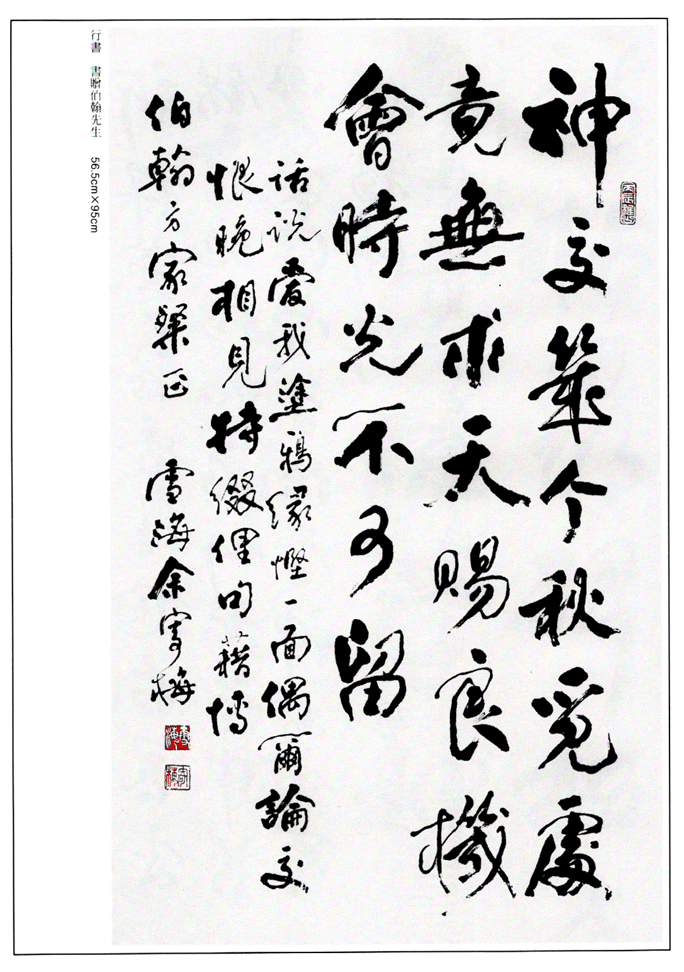 神交幾今秋覓處
竟無求天賜良機
會時光不可留
话说爱我塗鸦缘悭一面偶爾論交
恨晚相見特缀俚句藉博
伯翰方家粲正 雪海余寄梅
行書 書贈伯翰先生 56.5cm×95cm